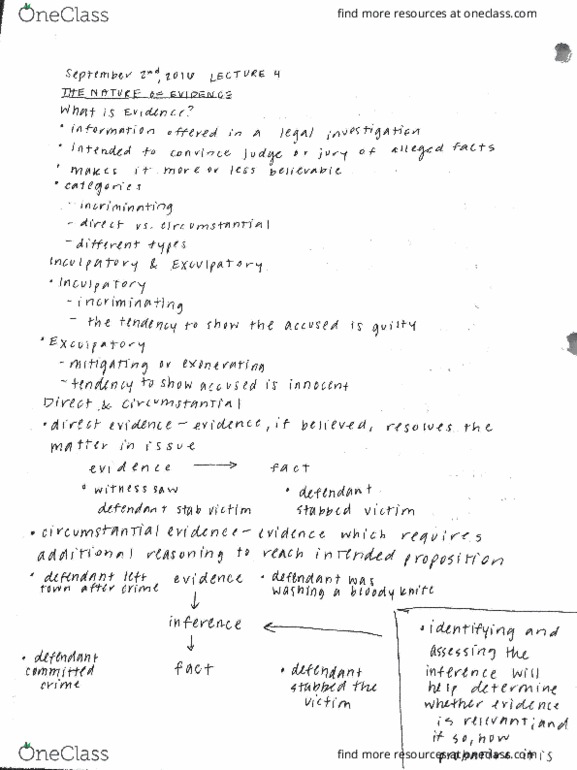 OneClass
find more resources at oneclass.com
September 2nd, 2016 LECTURE 4
THE NATURE OF EVIDENCE
What is Evidence?
• information offered in a legal investigation
• intended to convince judge or jury of alleged facts
• makes it more or less believable
• categories
- incriminating
- direct vs. circumstantial
- different types
Inculpatory & Exculpatory
• Inculpatory
- incriminating
- the tendency to show the accused is guilty
• Exculpatory
- mitigating or exonerating
- tendency to show accused is innocent
Direct & Circumstantial
• direct evidence - evidence, if believed, resolves the
matter in issue
evidence → fact
• witness saw
defendant stab victim
• defendant
stabbed victim
• circumstantial evidence - evidence which requires
additional reasoning to reach intended proposition
• defendant left
town after crime
evidence
• defendant was
washing a bloody knife
↓
inference ←
↓
• defendant
committed
crime
fact
• defendant
stabbed the
victim
• identifying and
assessing the
inference will
help determine
whether evidence
is relevant; and
if so, how
probative it is
OneClass
find more resources at oneclass.com